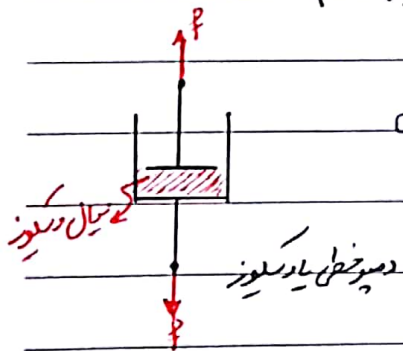 f
سیال ویسکوز
دمپر خطی یا ویسکوز
f